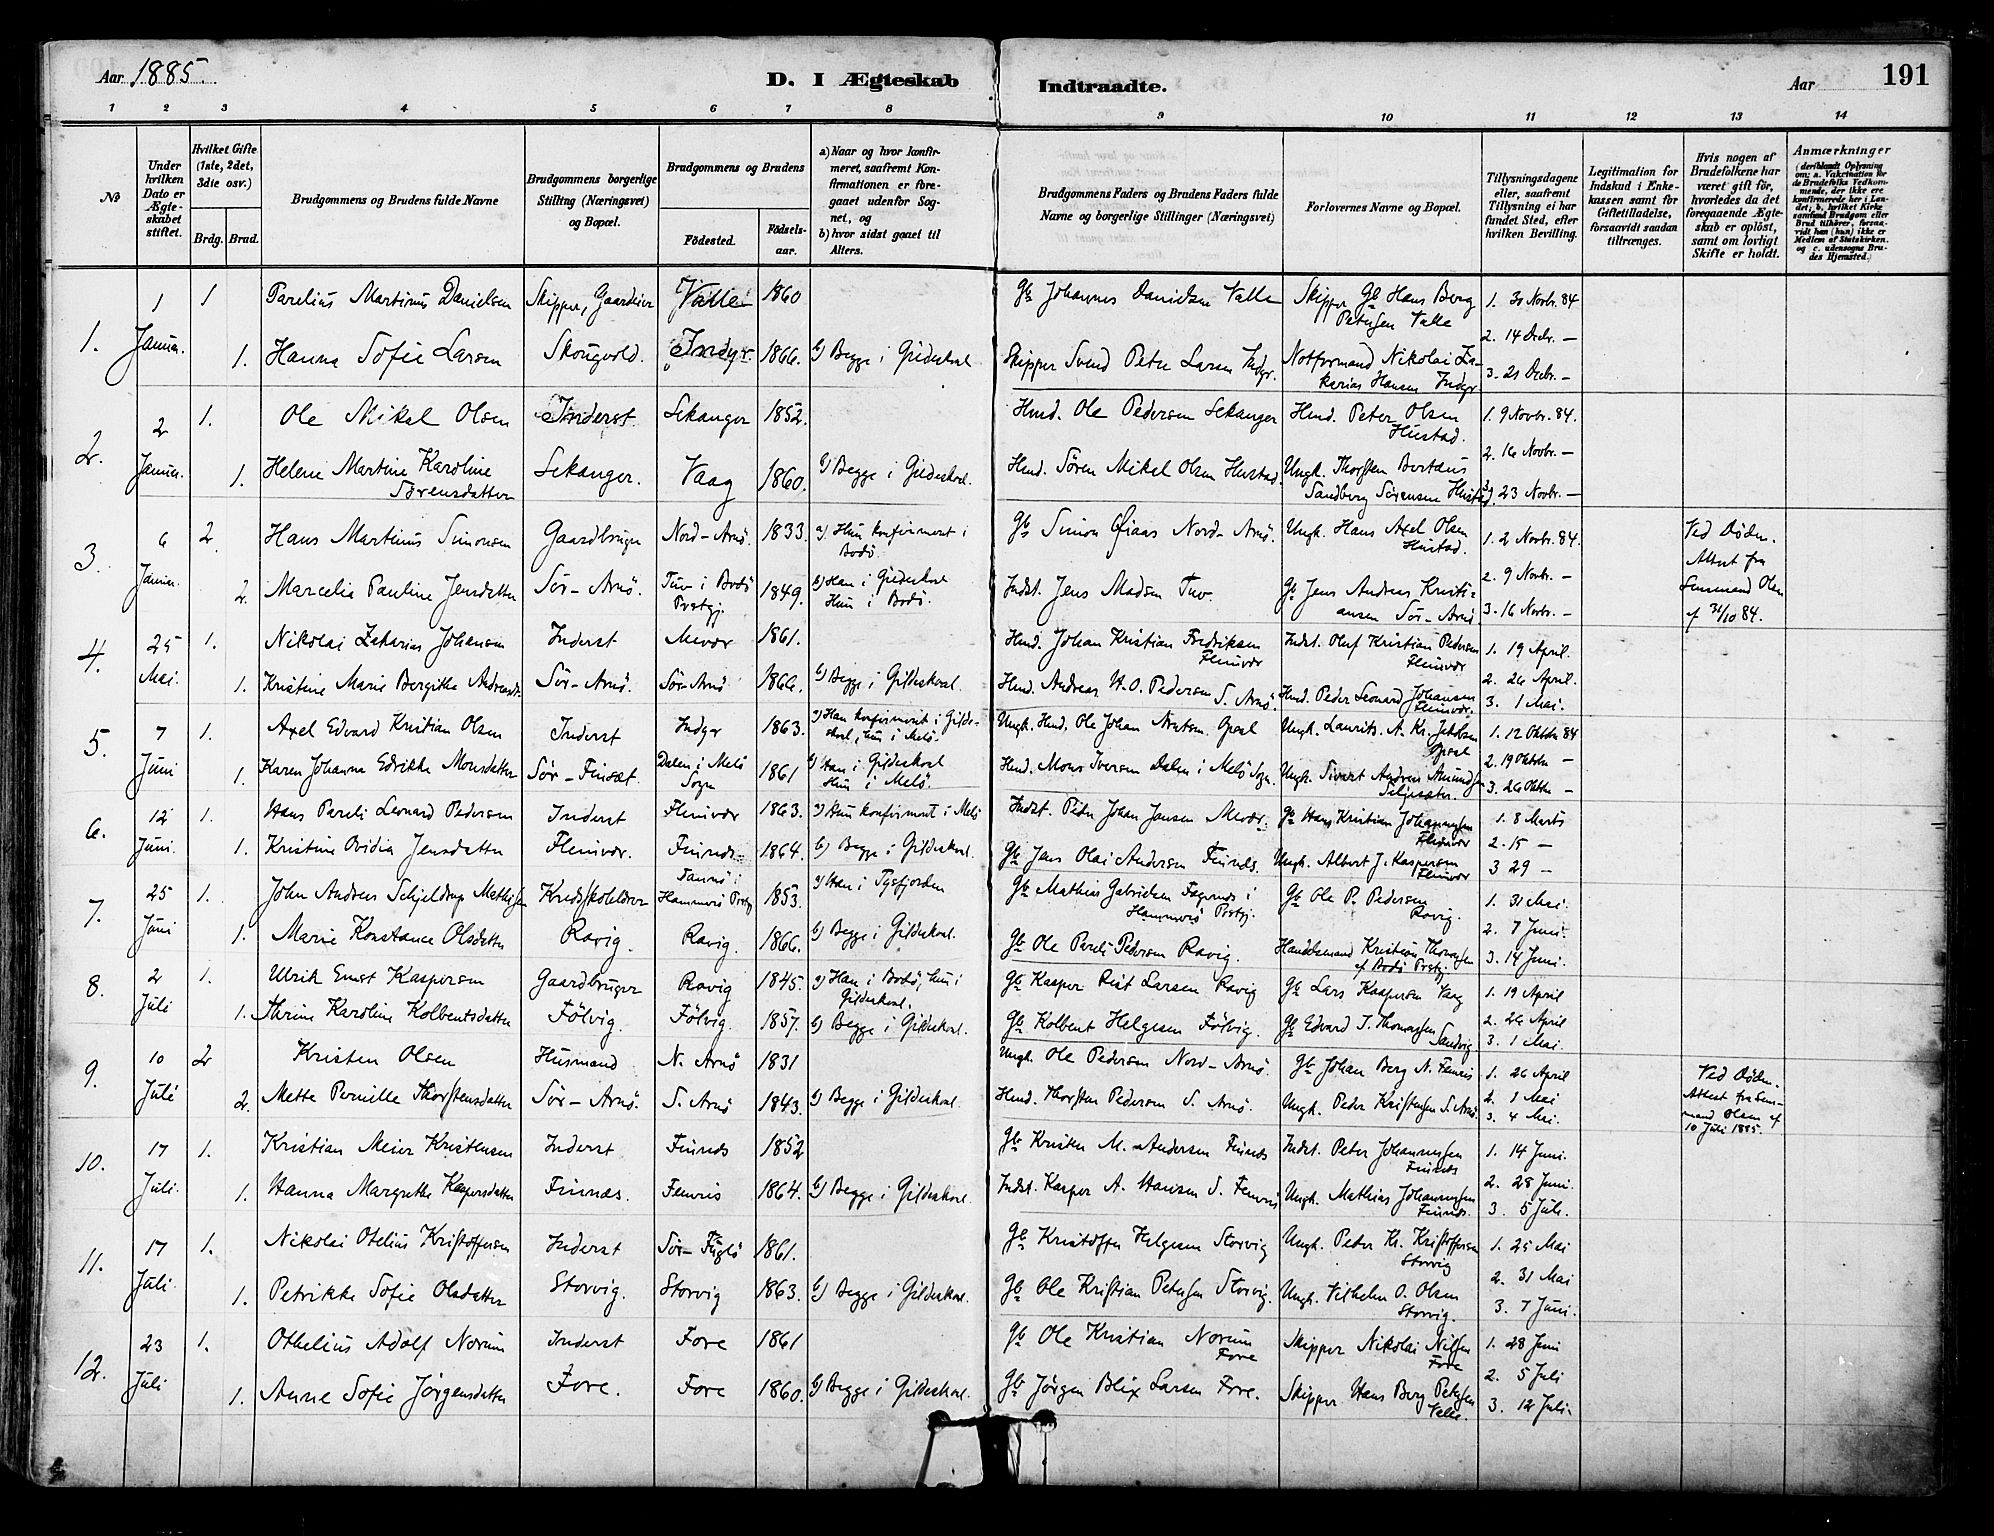 Aar 1885.
D. I Ægteskab Indtraadte.
Aar
191
1 2 3 4 5 6 7 8 9 10 11 12 13 14
No
Under hvilken Dato er Ægteskabet stiftet.
Hvilket Gifte (1ste, 2det, 3die osv.)
Brdg. Brud.
Brudgommens og Brudens fulde Navne
Brudgommens borgerlige Stilling (Næringsvei) og Bopæl.
Brudgommens og Brudens
Fødested.
Fødselsaar.
a) Naar og hvor konfirmeret, saafremt Konfirmationen er foregaaet udenfor Sognet, og
b) hvor sidst gaaet til Alters.
Brudgommens Faders og Brudens Faders fulde Navne og borgerlige Stillinger (Næringsvei)
Forlovernes Navne og Bopæl.
Tillysningsdagene eller, saafremt Tillysning ei har fundet Sted, efter hvilken Bevilling.
Legitimation for Indskud i Enkekassen samt for Giftetilladelse, forsaavidt saadan tiltrænges.
Hvis nogen af Brudefolkene har været gift før, hvorledes da det foregaaende Ægteskab er opløst, samt om lovligt Skifte er holdt.
Anmærkninger (deriblandt Oplysning om: a. Vakcination for de Brudefolks Vedkommende, der ikke ere konfirmerede her i Landet; b. hvilket Kirkesamfund Brudgom eller Brud tilhører, forsaavidt han (hun) ikke er Medlem af Statskirken, og c. udensogns Brudes Hjemsted.)
1. 1 Januar. 1 Parelius Martinus Danielsen Skipper, Gaardeier Valle 1860 Gb Johannes Danielsen Valle Skipper Gb Hans Berg Petersen Valle 1. 30 Novbr. 84
1. Hanna Sofie Larsen Skougvold. Indyr. 1866. b) Begge i Gildeskaal Skipper Svend Peter Larsen Indyr. Notformand Nikolai Zakarias Hansen Indyr 2. 14 Decbr. — 3. 21 Decbr. —
2. 2 Januar. 1. Ole Mikal Olsen Inderst Sekanger 1852. Husmd. Ole Pedersen Sekanger Husmd. Peter Olsen Hustad. 1. 9 Novbr. 84.
1. Helene Martine Karoline Sørensdatter Sekanger. Vaag 1860. b) Begge i Gildeskaal. Husmd. Søren Mikal Olsen Hustad. Ungk. Thorsten Bertæus Sandberg Sørensen Hustad 2. 16 Novbr. — 3) 23 Novbr. —
3. 6 Januar. 2. Hans Martinus Simonsen Gaardbruger Nord-Arnø. 1833. a) Hun konfirmeret i Bodø. Gb Simon Nord-Arnø. Ungk. Hans Axel Olsen Hustad. 1. 2 Novbr. 84. Ved Døden. Attest fra Lensmand Olsen af 31/10 84.
2. Marcelia Pauline Jensdatter Sør-Arnø. Tuv i Bodø Prstgj. 1849. b) Han i Gildeskaal Hun i Bodø. Indst. Jens Madsen Tuv. Gb Jens Andreas Kristiansen Sør-Arnø 2. 9 Novbr. — 3. 16 Novbr. —
4. 25 Mai. 1. Nikolai Zakarias Johansen Inderst Mevær 1861. Husmd. Johan Kristian Fredriksen Fleinvær Indst. Oluf Kristian Pedersen Fleinvær 1. 19 April.
1. Kristine Marie Bergitte Andreasdtr Sør-Arnø. Sør-Arnø 1866. b) Begge i Gildeskaal. Husmd. Andreas H.O. Pedersen S. Arnø. Husmd. Peder Leonard Johansen Fleinvær. 2. 26 April. 3. 1 Mai.
5. 7 Juni 1. Axel Edvard Kristian Olsen Inderst Indyr 1863. a) Han konfirmeret i Gildeskaal, hun i Melø. Ungk. Husmd. Ole Johan Opsal Ungk. Laurits A. Kr. Jakobsen Opsal 1. 12 Oktbr 84
1. Karen Johanna Edrikke Monsdatter Sør-Finset. Dalen i Melø Sogn 1861 b) Han i Gildeskaal Hun i Melø. Husmd. Mons Iversen Dalen i Melø Sogn. Ungk. Sivert Andreas Amundsen Seljesæter. 2. 19 Oktbr — 3. 26 Oktbr —
6. 12 Juni. 1. Hans Pareli Leonard Pedersen Inderst Fleinvær 1863. a) Hun konfirmeret i Melø Indst. Peder Johan Jansen Mevær. Gb Hans Kristian Johannesen Fleinvær 1. 8 Marts
1. Kristine Ovidia Jensdatter Fleinvær. Finnes 1864. b) Begge i Gildeskaal. Gb Jens Olai Andersen Finnes. Ungk. Albert J. Kaspersen Fleinvær 2. 15 — 3 29 —
7. 25 Juni 1. John Andreas Schjeldrup Mathisen Kredsskolelærer Tannø i Hammerø Prstgj. 1853. a) Han i Tysfjorden Gb Mathias Gabrielsen Fagernes i Hammerø Prstgj. Gb Ole P. Pedersen Ravig. 1. 31 Mai.
1. Marie Konstance Olsdatter Ravig. Ravig. 1866. b) Begge i Gildeskaal. Gb Ole Pareli Pedersen Ravig. Handelsmand Kristian Thomassen af Bodø Prstgj. 2. 7 Juni. 3. 14 Juni.
8. 2 Juli 1. Ulrik Ernst Kaspersen Gaardbruger Ravig 1845. a) Han i Bodø, hun i Gildeskaal. Gb Kasper Rist Larsen Ravig Gb Lars Kaspersen Vaag 1. 19 April
1. Thrine Karoline Kolbentsdatter Følvig. Følvig. 1857. b) Begge i Gildeskaal. Gb Kolbent Helgesen Følvig. Gb Edvard J. Thomassen Sandvig 2. 26 April 3. 1 Mai.
9. 10 Juli 2 Kristen Olsen Husmand N. Arnø 1831 Ungk. Ole Pedersen Nord-Arnø. Gb Johan Berg N. Femris 1. 26 April Ved Døden. Attest fra Lensmand Olsen af 10 Juli 1885.
2. Mette Pernille Thorstensdatter Sør-Arnø. S. Arnø 1843. b) Begge i Gildeskaal. Husmd. Thorsten Pedersen S. Arnø. Ungk. Peder Kristensen S. Arnø. 2. 1 Mai 3. 4 Mai.
10. 17 Juli. 1. Kristian Meier Kristensen Inderst Finnes 1852 Gb Kristen M. Andersen Finnes Indst. Peter Johannessen Finnes 1. 14 Juni.
1. Hanna Margrethe Kaspersdatter Finnes. Femris 1864. b) Begge i Gildeskaal Indst. Kasper A. Hansen S. Femris Ungk. Mathias Johannessen Finnes. 2. 28 Juni. 3. 5 Juli.
11. 17 Juli. 1. Nikolai Otelius Kristoffersen Inderst Sør-Fuglø 1861. Gb Kristoffer Helgesen Storvig Ungk. Peter Kr. Kristoffersen Storvig 1. 25 Mai
1. Petrikke Sofie Olsdatter Storvig. Storvig 1863. b) Begge i Gildeskaal. Gb Ole Kristian Petersen Storvig. Ungk. Vilhelm O. Olsen Storvig. 2. 31 Mai 3. 7 Juni.
12. 23 Juli 1. Othelius Adolf Norum Inderst Fore 1861 Gb Ole Kristian Norum Fore Skipper Nikolai Nilsen Fore 1. 28 Juni
1. Anne Sofie Jørgensdatter Fore. Fore 1860. b) Begge i Gildeskaal. Gb Jørgen Blix Larsen Fore. Skipper Hans Berg Petersen Valle. 2. 5 Juli 3. 12 Juli.